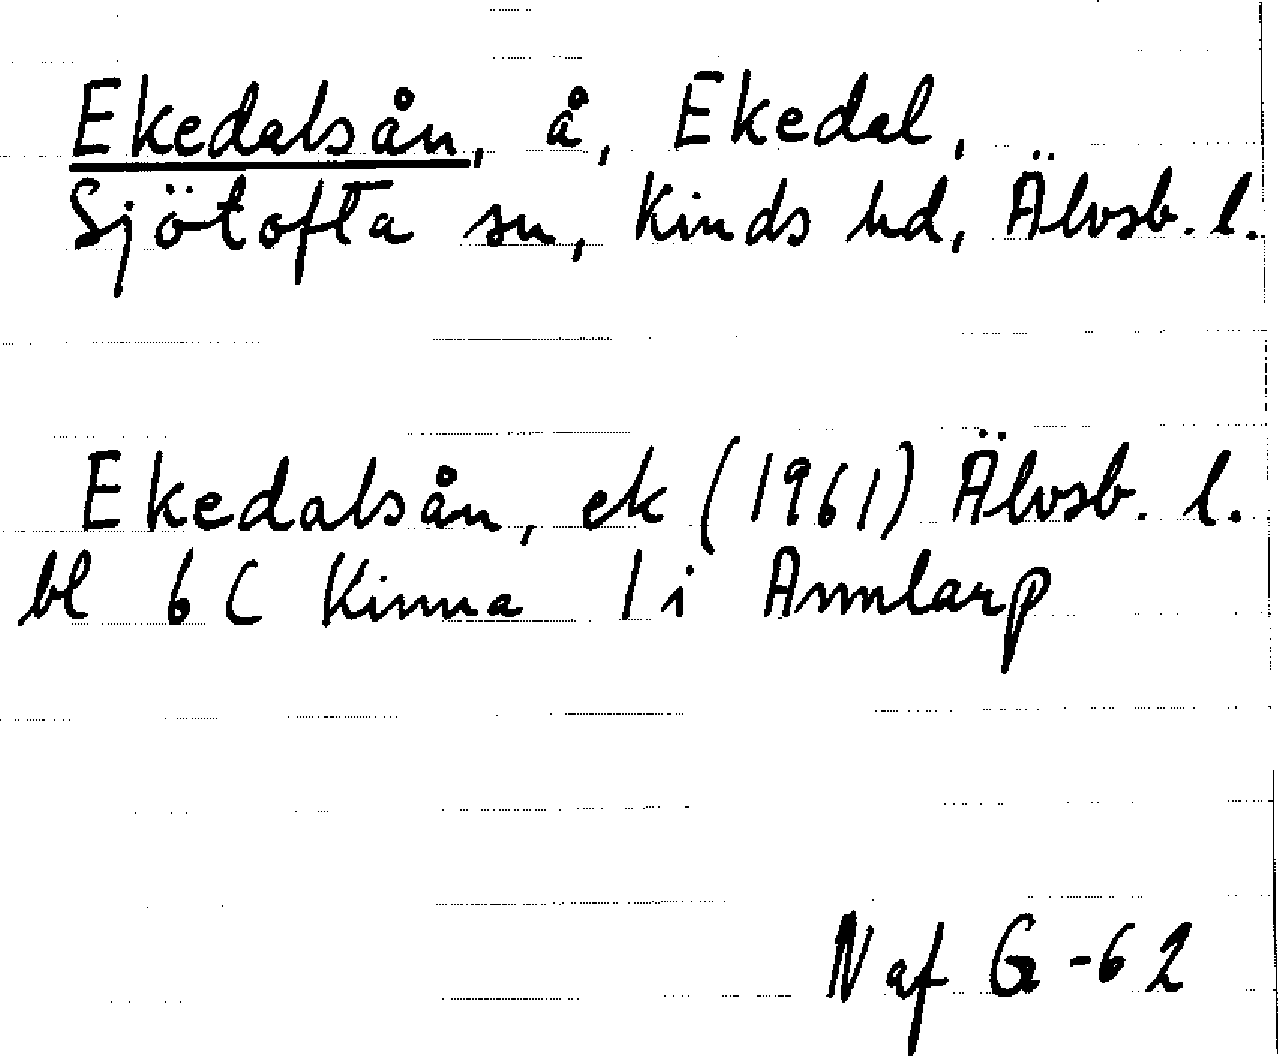 Ekedalsån, å, Ekedal,
Sjötofta sn, Kinds hd, Älvsb. l.
Ekedalsån, ek (1961) Älvsb. l.
bl 6 C Kinna 1 i Ammlarp
N af G-62